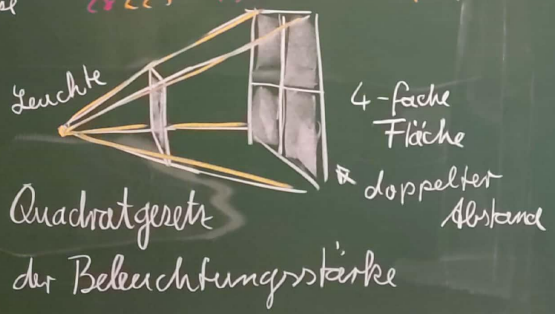 Leuchte
4-fache
Fläche
doppelter
Abstand
Quadratgesetz
der Beleuchtungsstärke